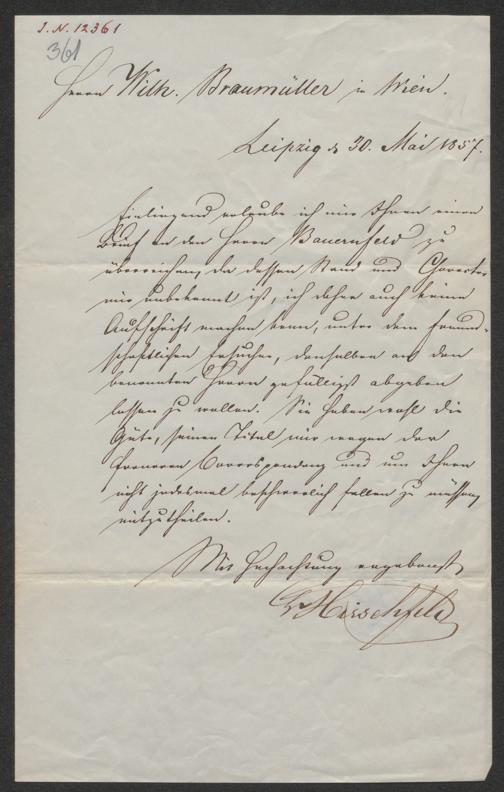 I. N. 12361
361
Herrn Wilh. Braumüller in Wien.
Leipzig d 30. Mai 1857.
Einliegend erlaube ich mir Ihnen einen
Brief an den Herrn Bauernfeld zu
überreichen, da dessen Stand und Charakter
mir unbekannt ist, ich daher auch keine
Aufschrift machen kann, unter dem freund-
schaftlichen Ersuchen, denselben an den
benannten Herrn gefälligst abgeben
lassen zu wollen. Sie haben wohl die
Güte, seinen Titel mir wegen der
ferneren Correspondenz und um Ihnen
nicht jedesmal beschwerlich fallen zu müssen
mitzutheilen.
Mit Hochachtung ergebenst
Hirschfeld